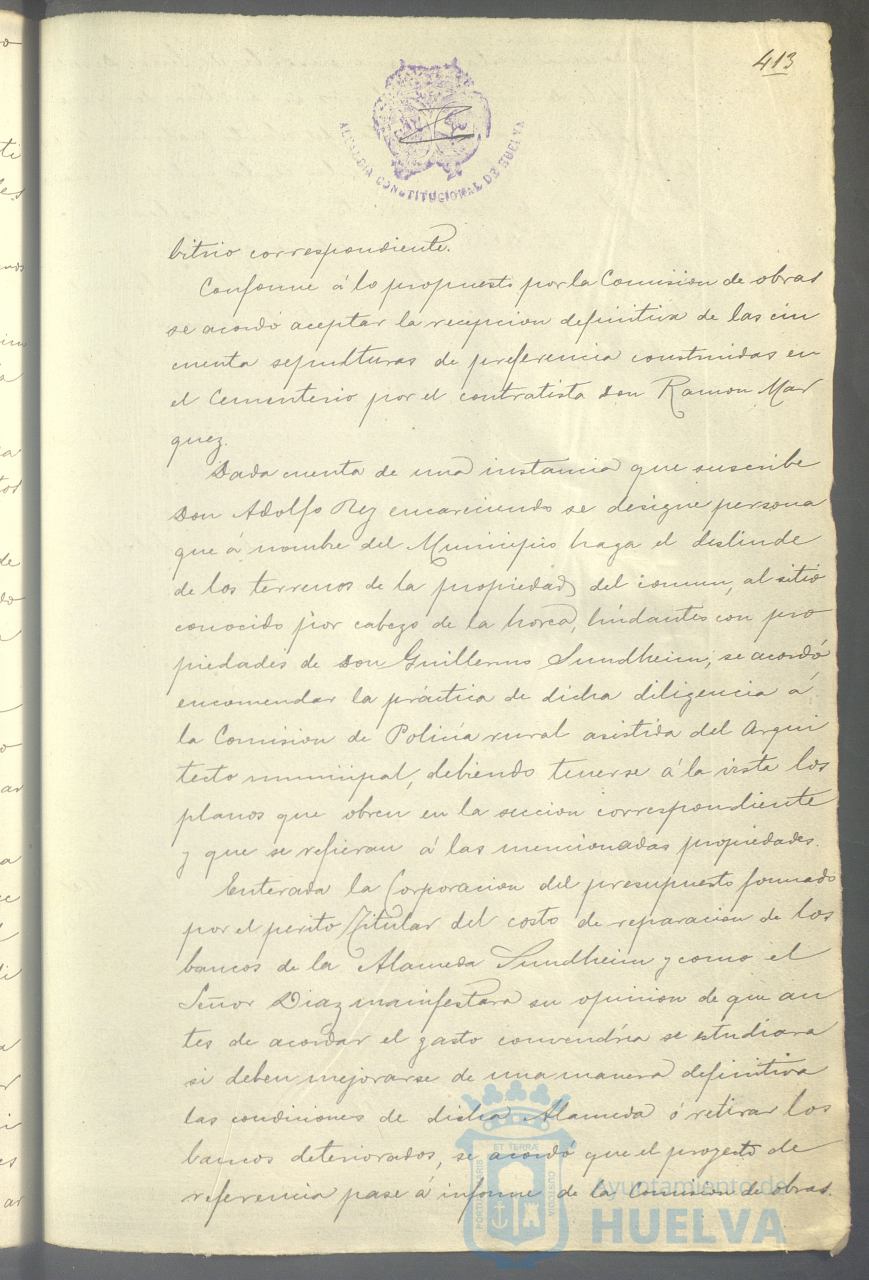 413
ALCALDIA CONSTITUCIONAL DE HUELVA
bitrio correspondiente.
Conforme á lo propuesto por la Comision de obras
se acordó aceptar la recepcion definitiva de las cin
cuenta sepulturas de preferencia construidas en
el Cementerio por el contratista don Ramon Mar
quez.
Dada cuenta de una instancia que suscribe
Don Adolfo Rey encareciendo se designe persona
que á nombre del Municipio haga el deslinde
de los terrenos de la propiedad del comun, al sitio
conocido por cabezo de la horca, lindantes con pro
piedades de don Guillermo Sundheim; se acordó
encomendar la práctica de dicha diligencia á
la Comision de Policia rural asistida del Arqui
tecto municipal, debiendo tenerse á la vista los
planos que obren en la seccion correspondiente
y que se refieran á las mencionadas propiedades.
Enterada la Corporacion del presupuesto formado
por el perito Titular del costo de reparacion de los
bancos de la Alameda Sundheim y como el
Señor Diaz manifestara su opinion de que an
tes de acordar el gasto convendria se estudiara
si deben mejorarse de una manera definitiva
las condiciones de dicha Alameda ó retirar los
bancos deteriorados, se acordó que el proyecto de
referencia pase á informe de la Comision de obras.
PORTUS MARIS ET TERRAE CUSTODIA
Ayuntamiento de
HUELVA